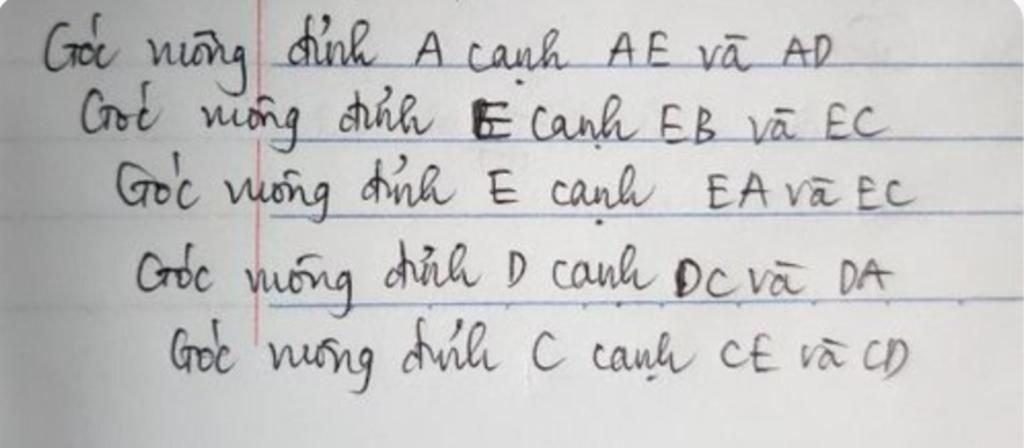 Góc vuông đỉnh A cạnh AE và AD
Góc vuông đỉnh E cạnh EB và EC
Góc vuông đỉnh E cạnh EA và EC
Góc vuông đỉnh D cạnh DC và DA
Góc vuông đỉnh C cạnh CE và CD